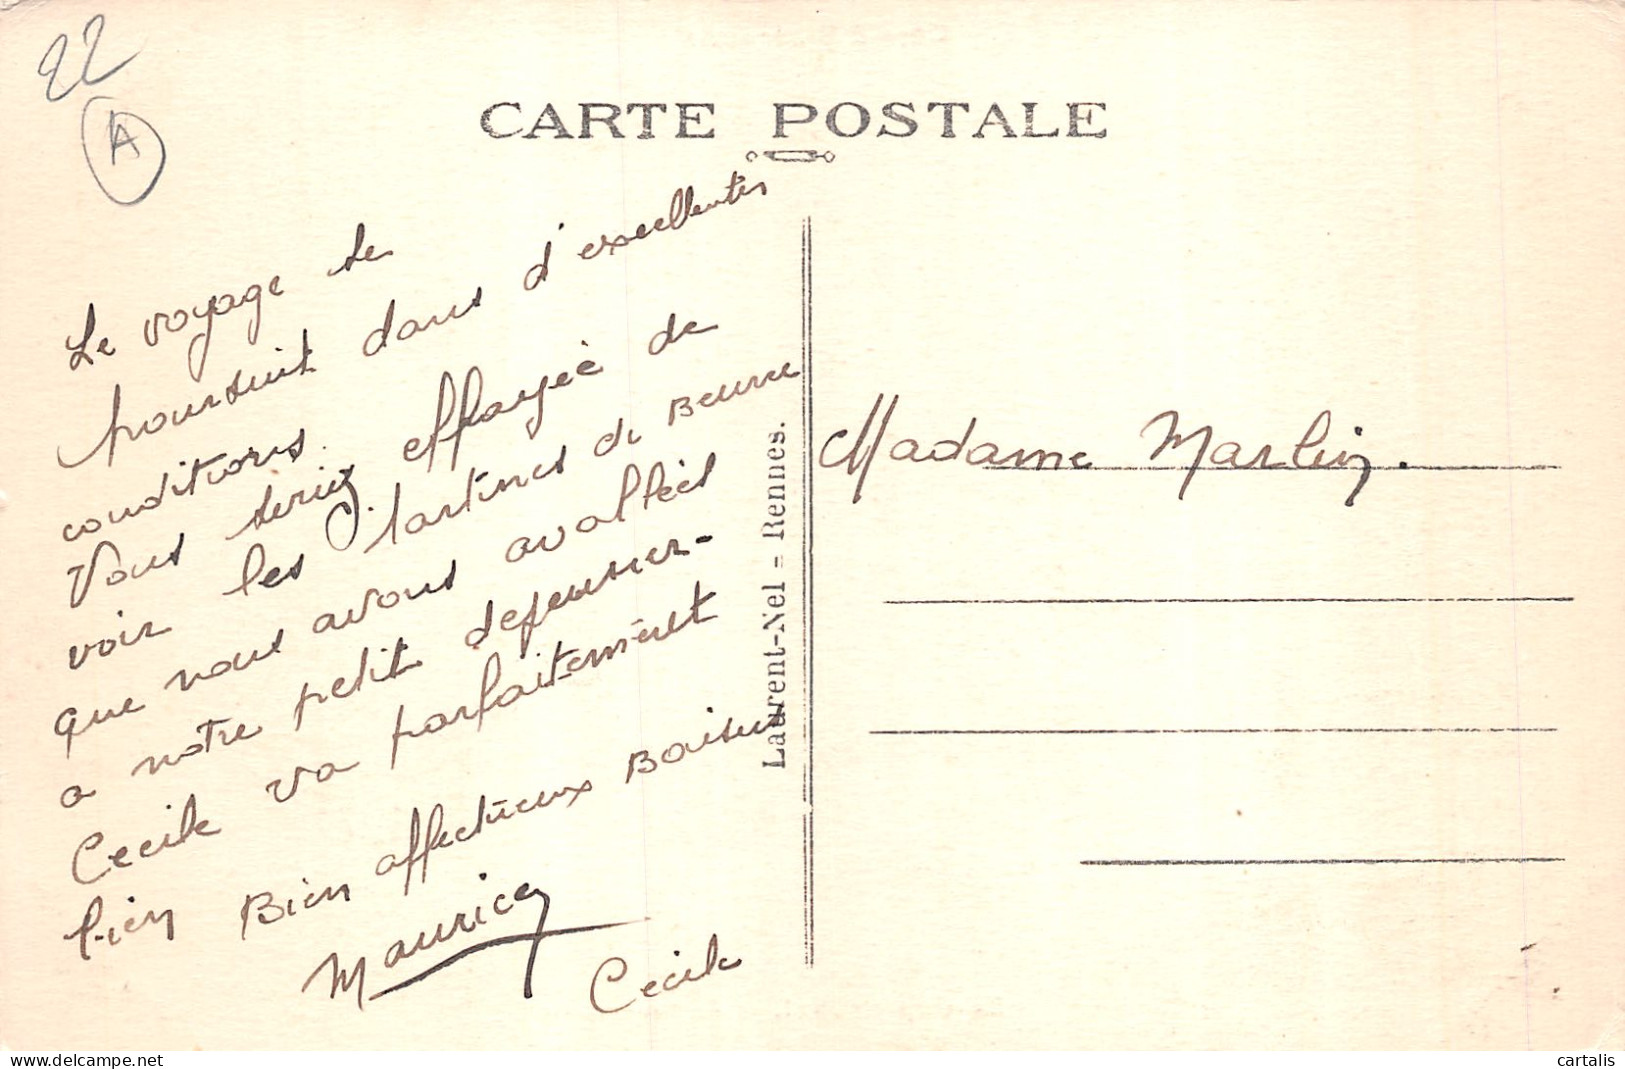 22
A
CARTE POSTALE
Le voyage se
poursuit dans d'excellentes
conditions.
Vous seriez effrayée de
voir les tartines de Beurre
que nous avons avallées
a notre petit dejeuner-
Cecile va parfaitement
bien Bien affectueux Baisers
Maurice
Cecile
Laurent-Nel = Rennes.
Madame Marlin.
delcampe.net
cartalis